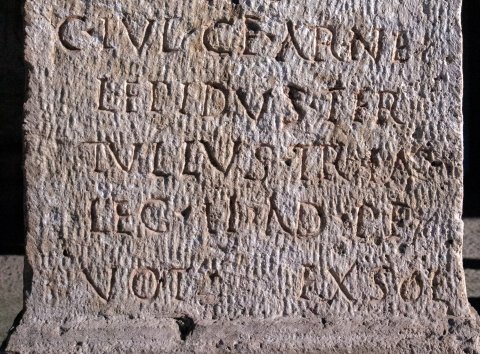 C·IVL·C F·ARNE
LEPIDVS·TER
TVLLVS·TR·
LEG·II·AD·P F·
VOT· EXSOL